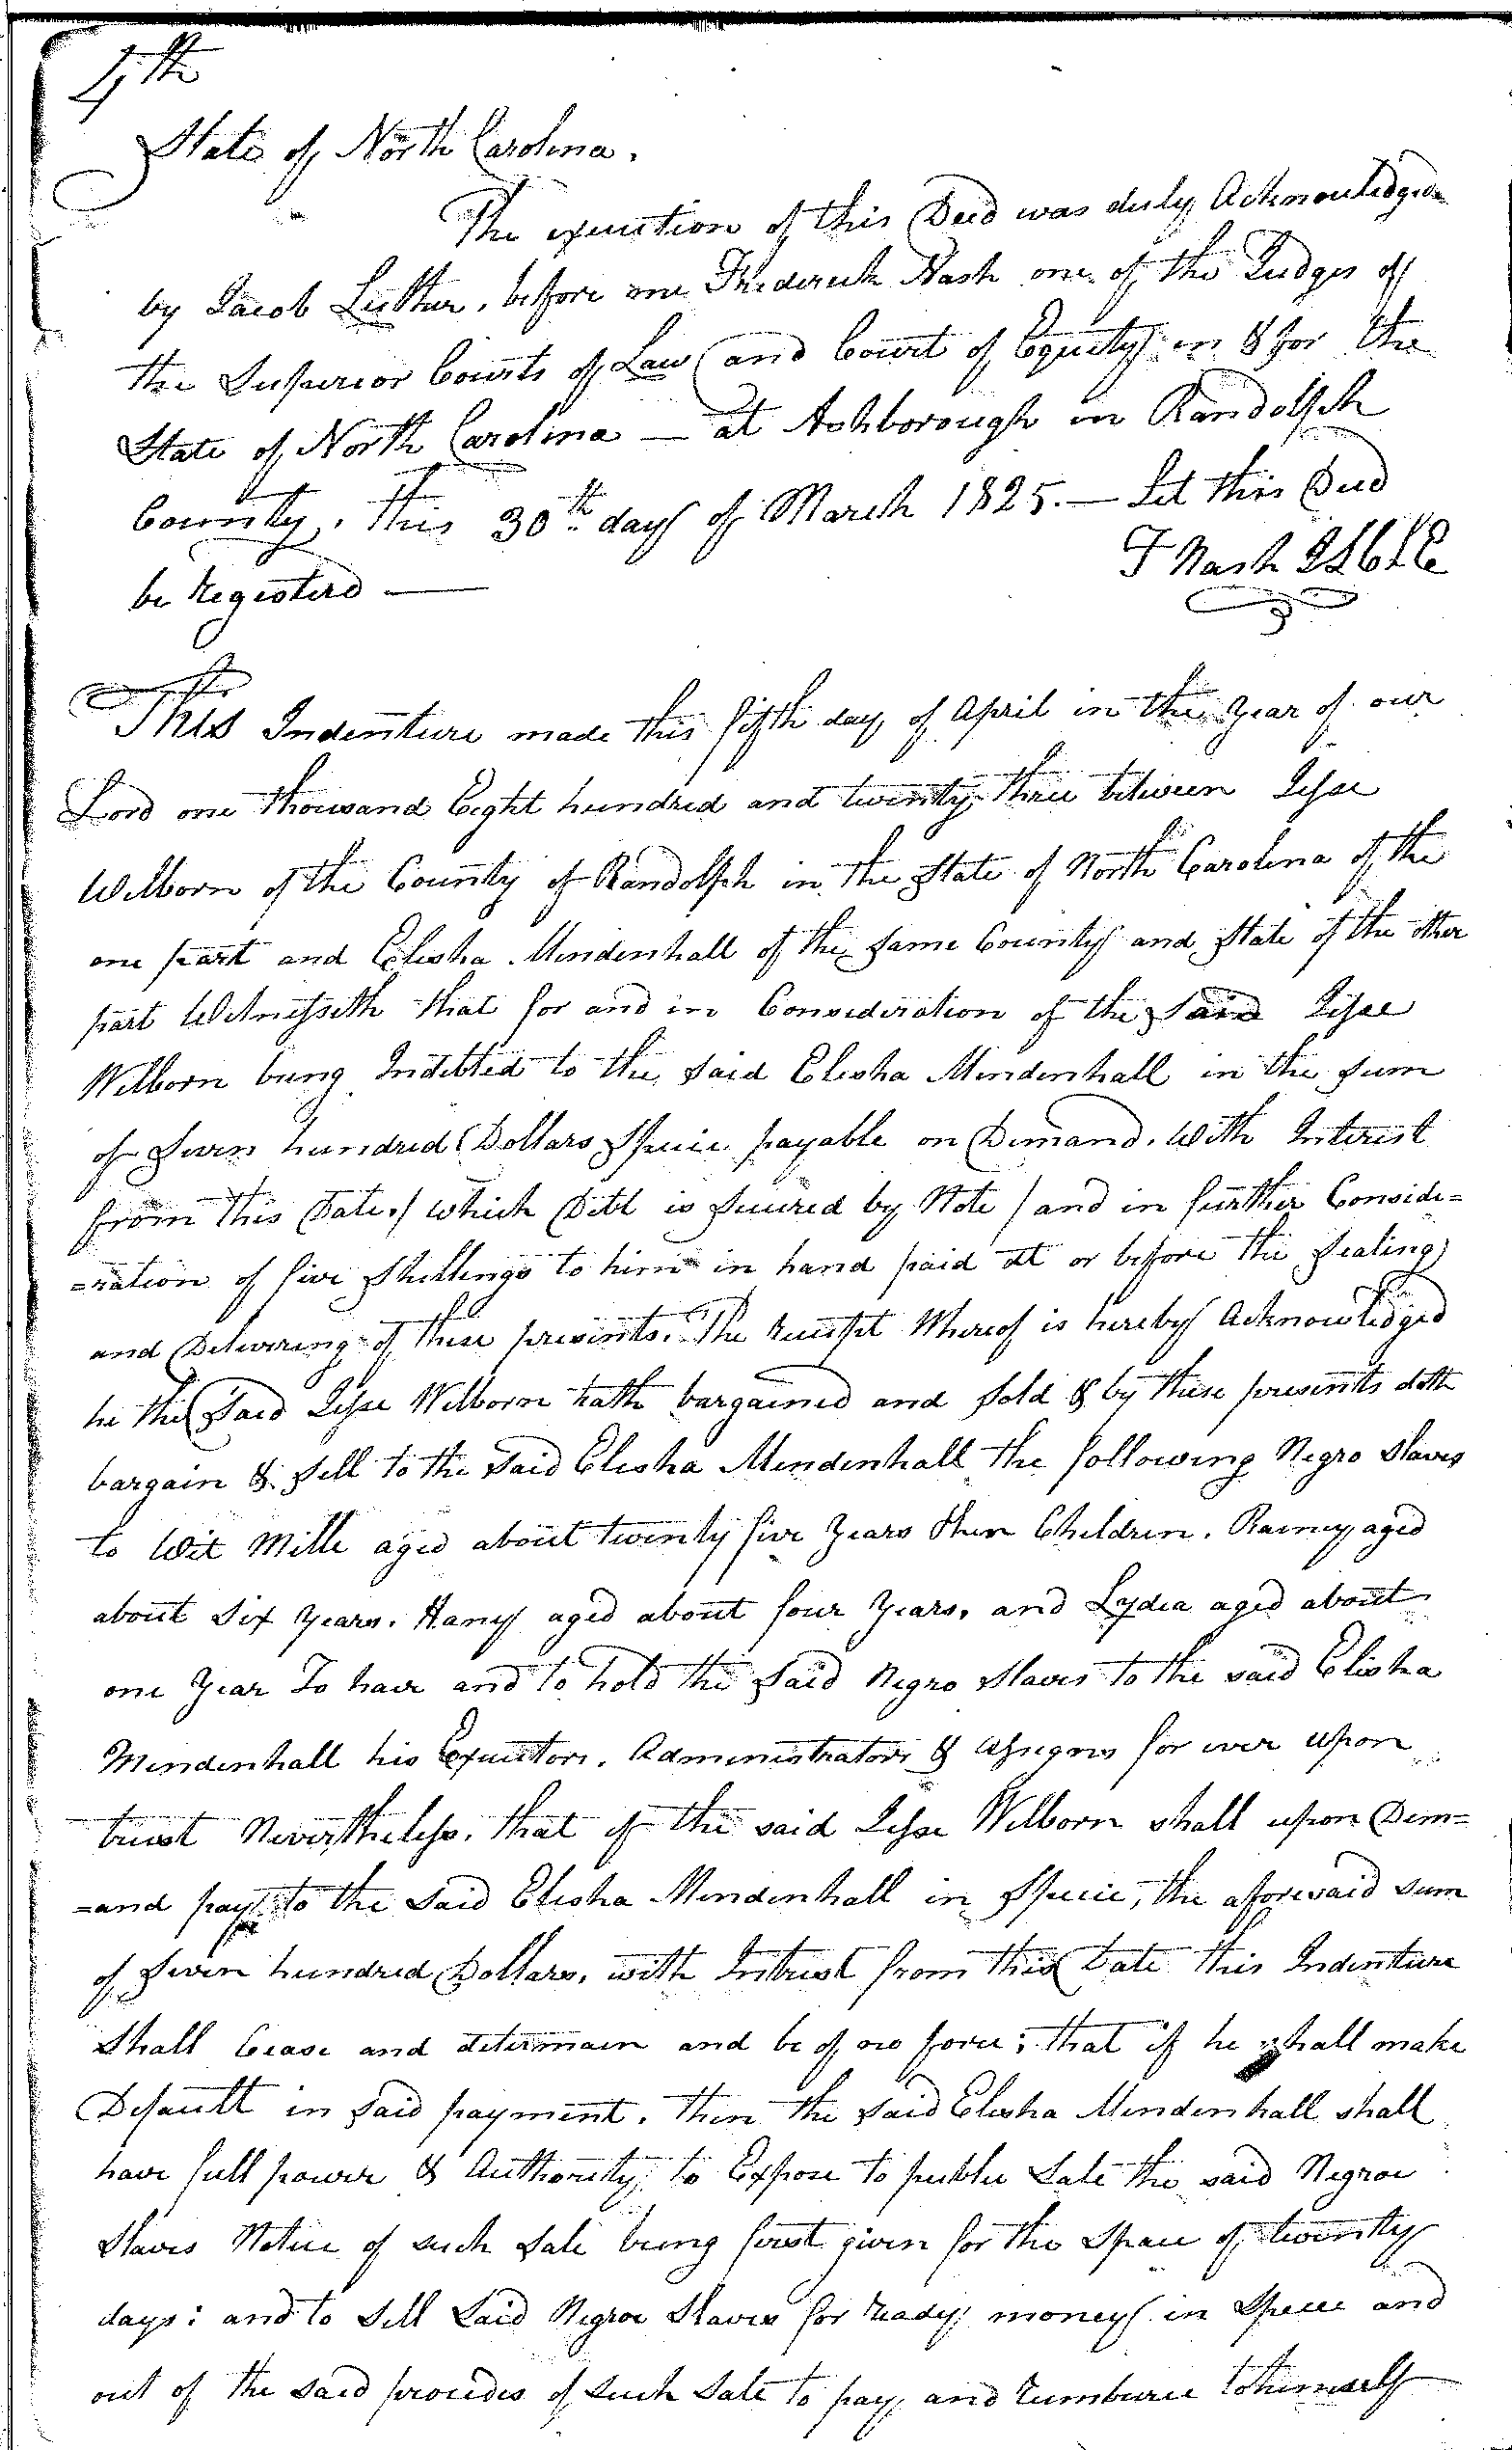 4th
State of North Carolina.
The execution of this Deed was duly Acknowledged
by Jacob Luther, before me Frederick Nash one of the Judges of
the Superior Courts of Law and Court of Equity in & for the
State of North Carolina — at Ashborough in Randolph
County, this 30th day of March 1825. — Let this Deed
be Registerd —
F Nash
This Indenture made this fifth day of April in the Year of our
Lord one thousand Eight hundred and twenty three between Jesse
Welborn of the County of Randolph in the State of North Carolina of the
one part and Elisha Mendenhall of the Same County and State of the other
part Witnesseth that for and in Consideration of the Said Jesse
Welborn being Indebted to the Said Elisha Mendenhall in the Sum
of Seven hundred Dollars Specie payable on Demand, With Interest
from this Date / which Debt is Secured by Note / and in further Conside=
=ration of five Shillings to him in hand paid at or before the Sealing
and Delivering of these presents. The receipt Whereof is hereby Acknowledged
he the Said Jesse Welborn hath bargained and Sold & by these presents doth
bargain & Sell to the Said Elisha Mendenhall the following Negro Slaves
to Wit Mille aged about twenty five Years Children. Rainey, aged
about Six Years. Hany aged about four Years, and Lydia aged about
one Year To have and to hold the Said Negro Slaves to the said Elisha
Mendenhall his Executors, Administrators & Assigns for ever upon
trust Nevertheless. that if the said Jesse Welborn shall upon Dem=
=and pay to the Said Elisha Mendenhall in Specie, the aforesaid sum
of Seven hundred Dollars, with Intrest from this Date this Indenture
Shall Cease and determain and be of no force; that if he shall make
Default in Said payment, then the Said Elisha Mendenhall shall
have full power & Authority, to Expose to public Sale the said Negroe
Slaves Notice of such Sale being first given for the Space of twenty
days: and to Sell Said Negroe Slaves for ready money in Specie and
out of the said procedes of Such Sale to pay, and reimburce to himself